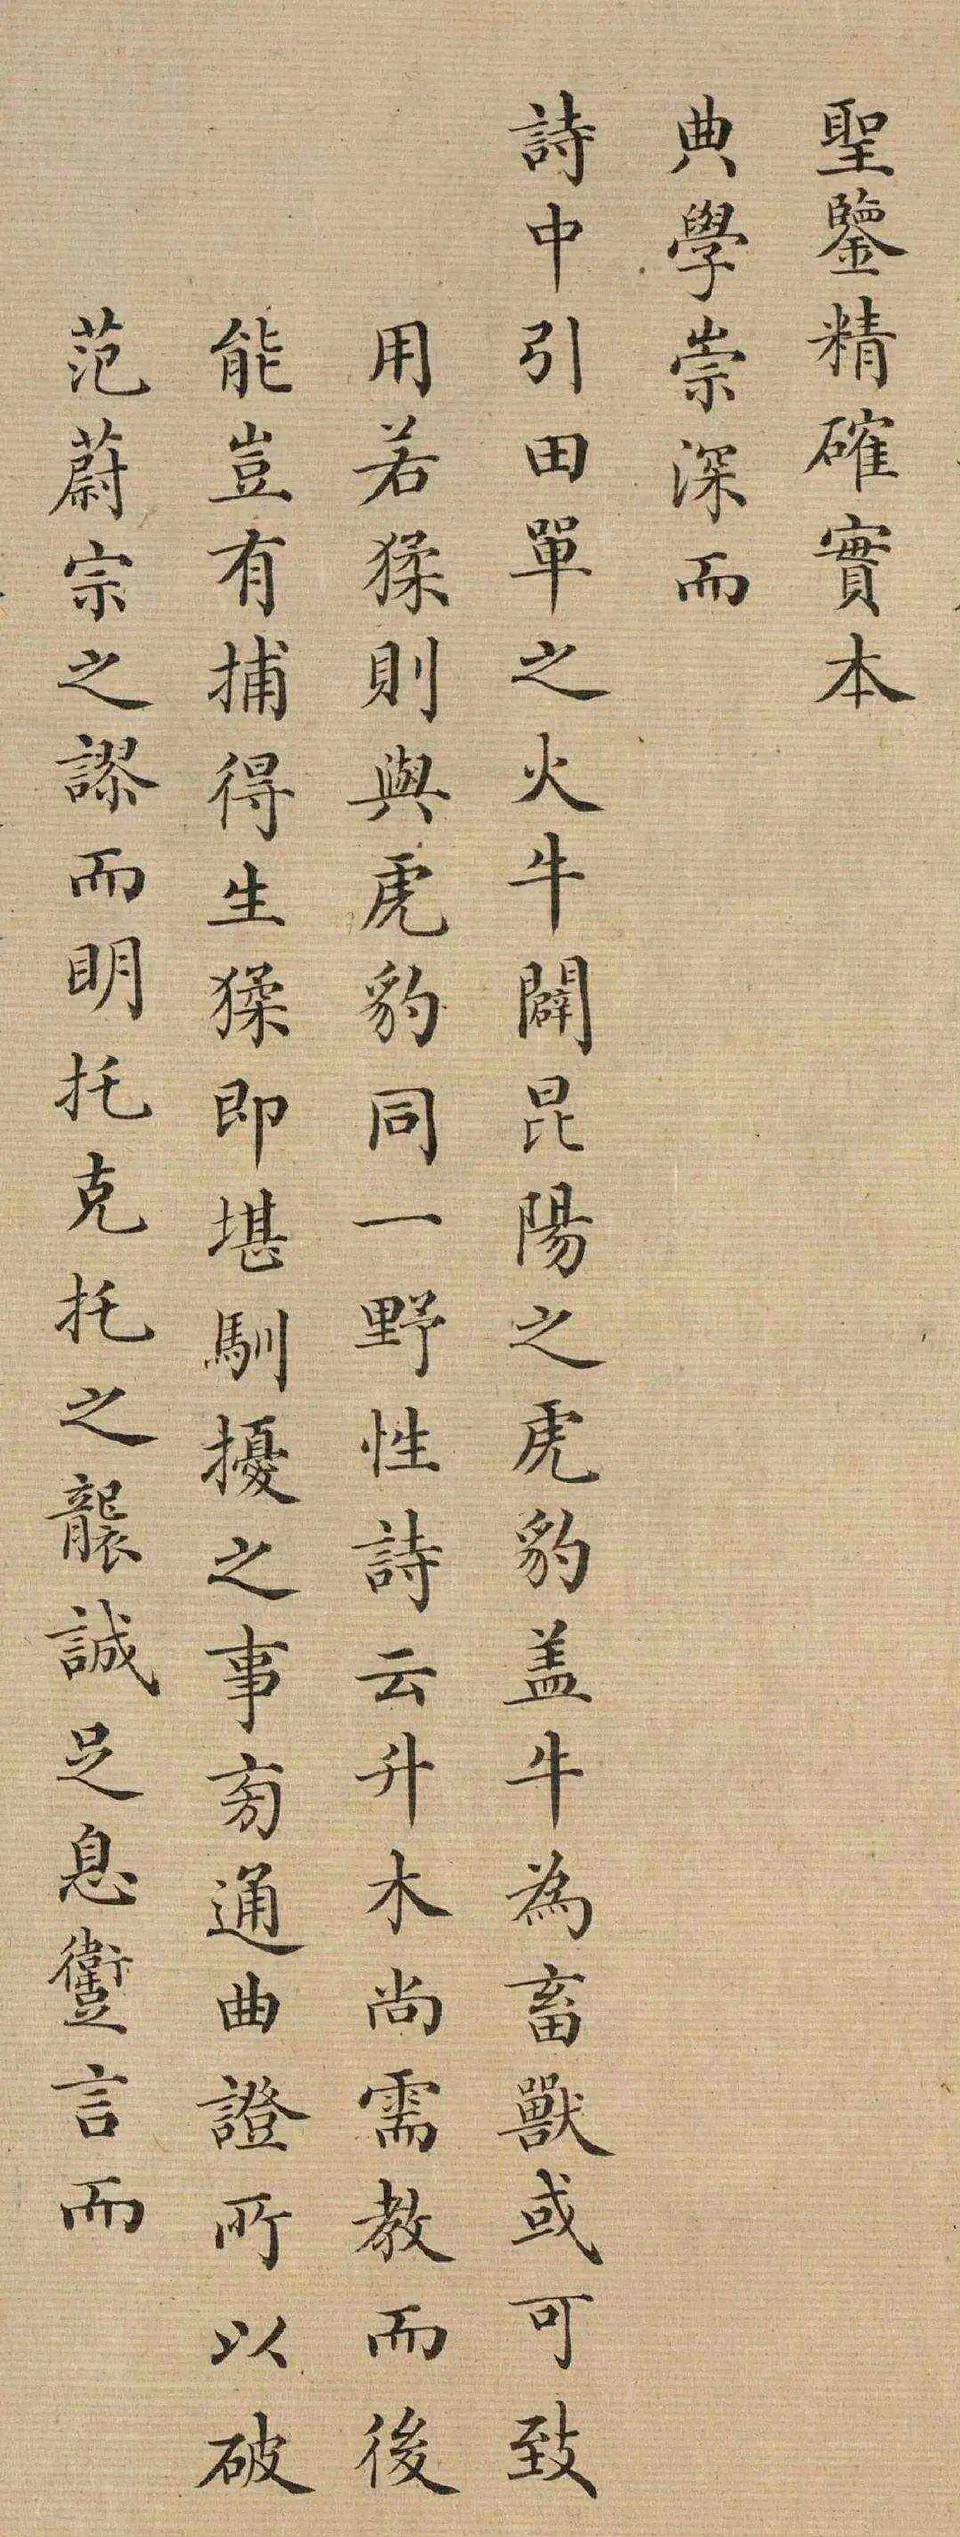 聖鑒精確實本
典學崇深而
詩中引田單之火牛闢昆陽之虎豹盖牛為畜獸或可致
用若猱則與虎豹同一野性詩云升木尚需教而後
能豈有捕得生猱即堪馴擾之事旁通曲證所以破
范蔚宗之謬而明托克托之襲誠足息讆言而